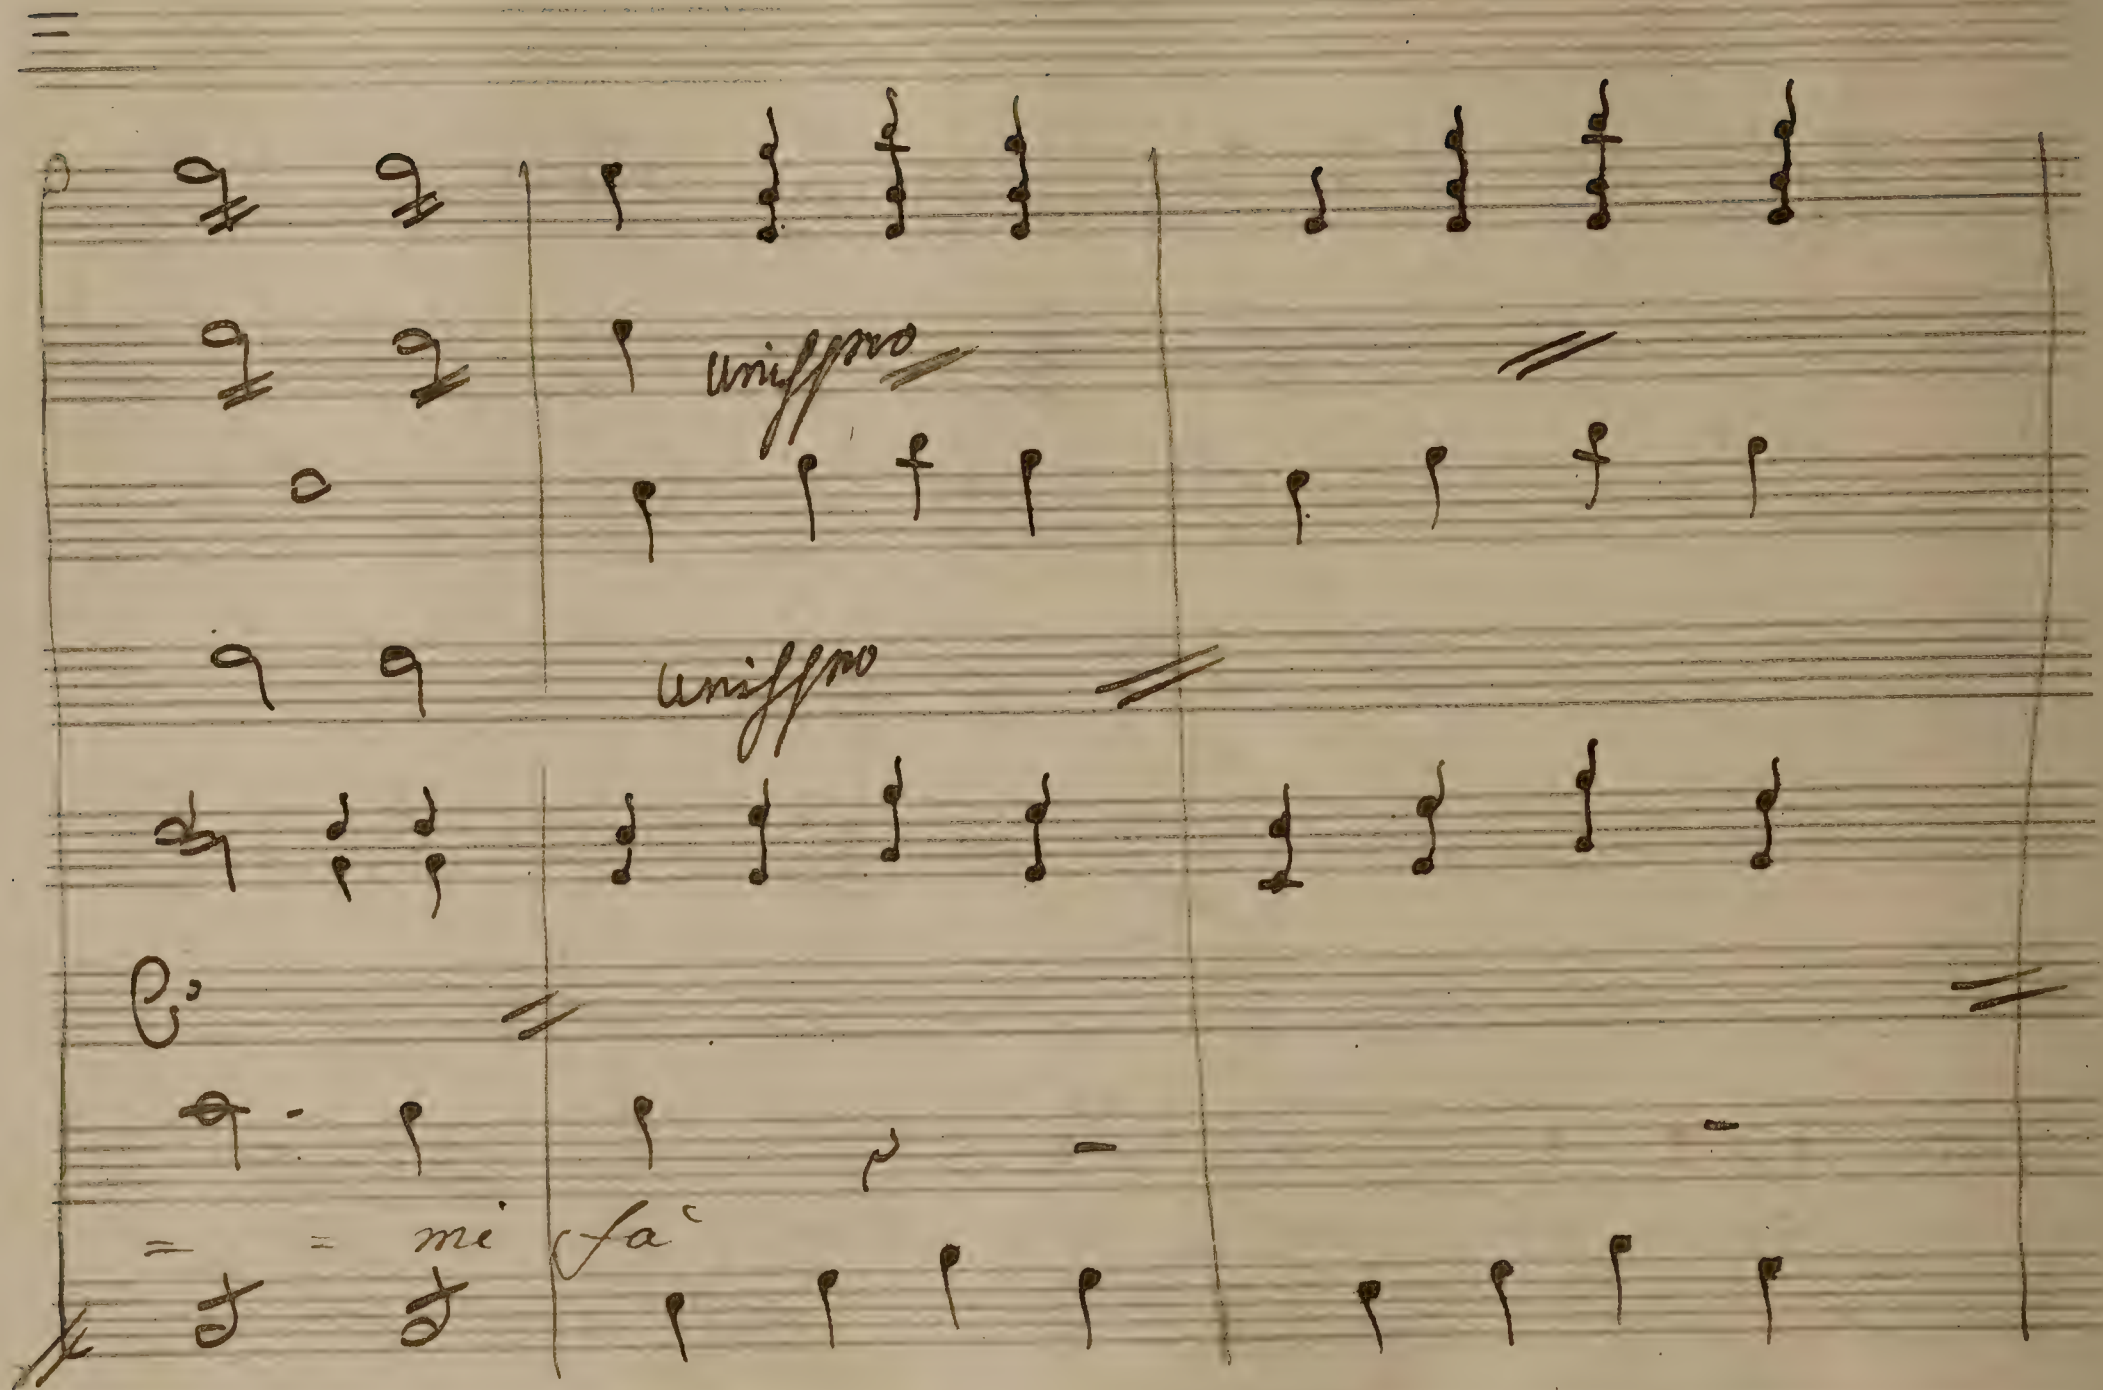 unissono
unissono
= = mi fa